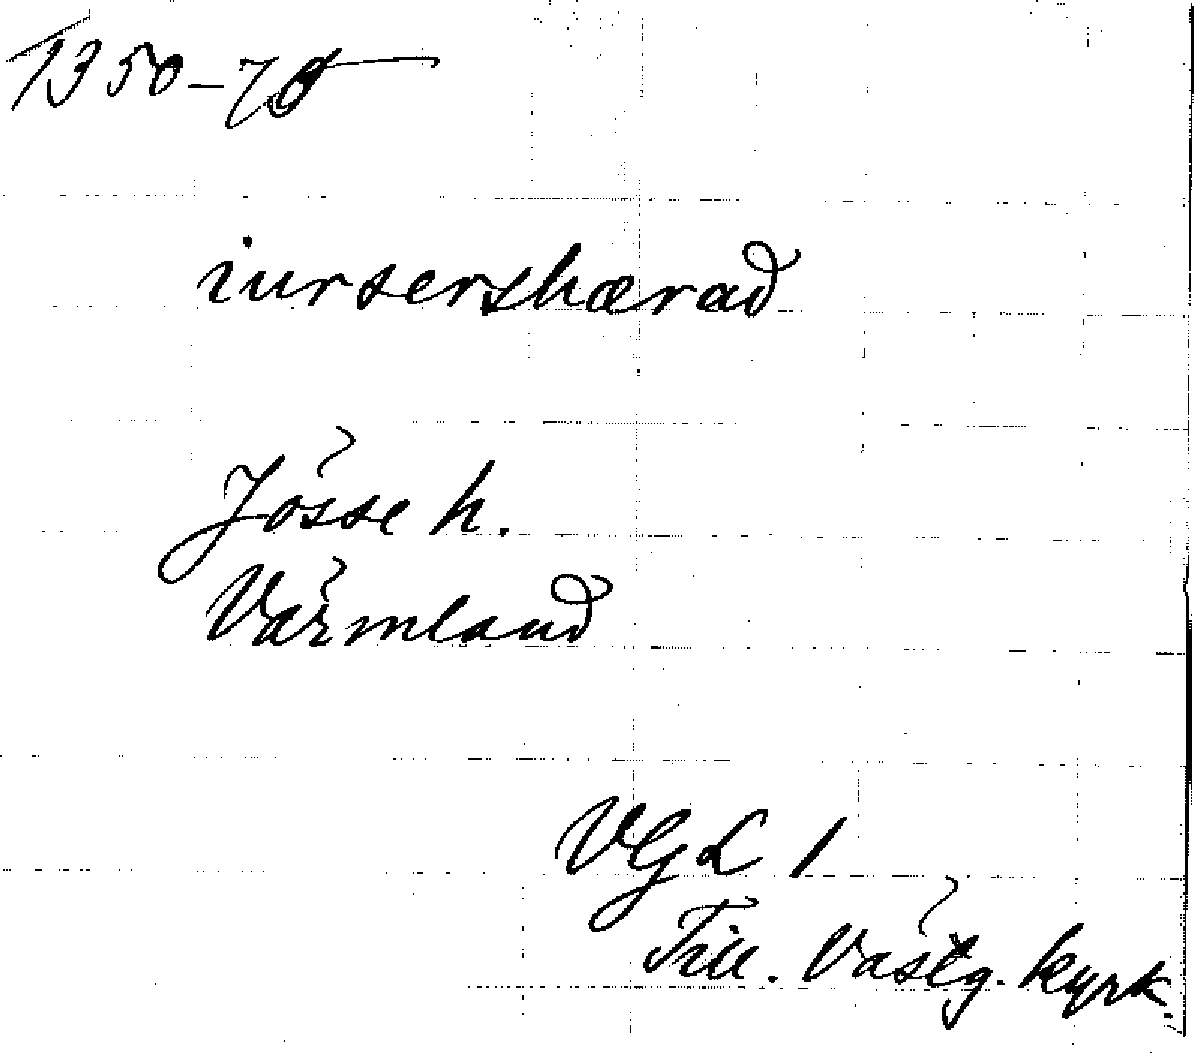 1350-70
iursershærad
Jösse h.
Värmland
VGL 1
Till. Västg. kyrk.